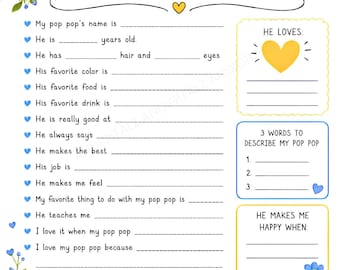 My pop pop's name is ____________
He is ________ years old.
He has ________ hair and ________ eyes
His favorite color is ____________
His favorite food is ____________
His favorite drink is ____________
He is really good at ____________
He always says ____________
He makes the best ____________
His job is ____________
He makes me feel ____________
My favorite thing to do with my pop pop is ____________
He teaches me ____________
I love it when my pop pop ____________
I love my pop pop because ____________
HE LOVES:
3 WORDS TO
DESCRIBE MY POP POP
1. ____________
2. ____________
3. ____________
HE MAKES ME
HAPPY WHEN: